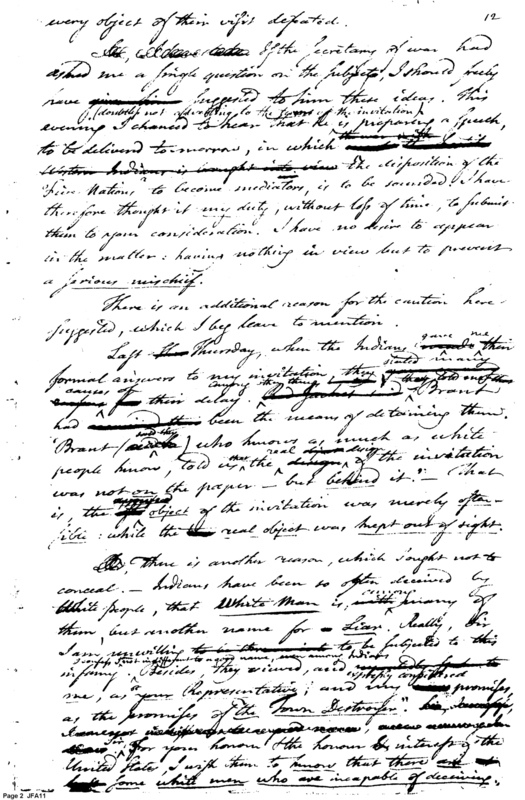 12
every object of their visit defeated.
If the Secretary of war had
asked me a single question on the subject, I should freely
have suggested to him these ideas. This
(doubtless not adverting to the of the invitation)
evening I chanced to hear that he is preparing a speech,
to be delivered tomorrow, in which
Western Indians is brought into view the disposition of the
Five Nations to become mediators, is to be sounded. I have
therefore thought it my duty, without loss of time, to submit
them to your consideration. I have no desire to appear
in the matter: having nothing in view but to prevent
a serious mischief.
There is an additional reason for the caution here
suggested, which I beg leave to mention.
gave me
Last Thursday, when the Indians their
formal answers to my invitation, they stated many
causes of their delay among other things, that Brant
had been the means of detaining them.
said they
Brant ( ) who knows as much as white
people know, told us that the real design of the invitation
was not on the paper — but behind it." — That
is, the object of the invitation was merely osten-
sible: while the real object was kept out of sight.
There is another reason, which I ought not to
conceal. — Indians have been so often deceived by
White people, that White Man is, among many of
them, but another name for Liar. Really, Sir
I am unwilling to be subjected to this
infamy. I confess I am not indifferent to a good name, even among Indians.
Besides, they viewed, and expressly considered
me, as your Representative; and my promises,
as the promises of the Town Destroyer.
Sir, For your honour & the honour & interest of the
United States, I wish them to know that there are
some white men who are incapable of deceiving.
Page 2 JFA11